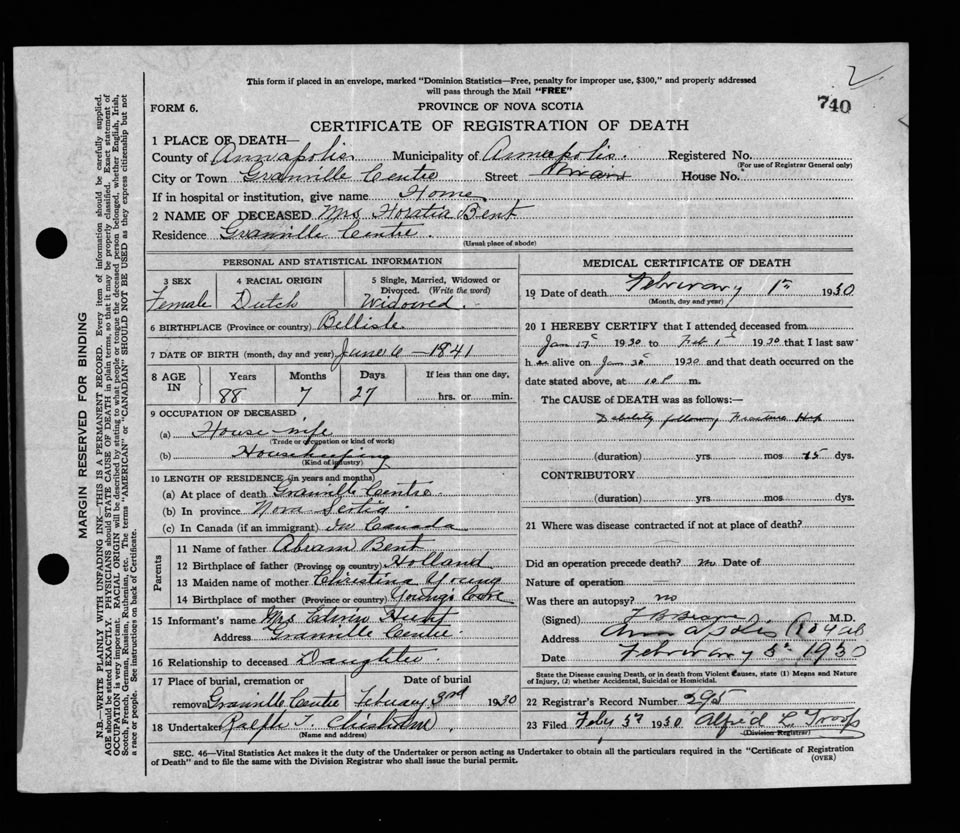 2
740
This form if placed in an envelope, marked "Dominion Statistics—Free, penalty for improper use, $300," and properly addressed
will pass through the Mail "FREE"
FORM 6.
PROVINCE OF NOVA SCOTIA
CERTIFICATE OF REGISTRATION OF DEATH
1 PLACE OF DEATH—
County of Annapolis Municipality of Annapolis. Registered No.
(For use of Registrar General only)
City or Town Granville Centre Street House No.
If in hospital or institution, give name Home
2 NAME OF DECEASED Mrs Horatia Bent
Residence Granville Centre.
(Usual place of abode)
PERSONAL AND STATISTICAL INFORMATION
3 SEX
Female
4 RACIAL ORIGIN
Dutch
5 Single, Married, Widowed or
Divorced. (Write the word)
Widowed.
6 BIRTHPLACE (Province or country) Bellisle
7 DATE OF BIRTH (month, day and year) June 6 - 1841
8 AGE IN
Years Months Days If less than one day,
88 7 27 hrs. or min.
9 OCCUPATION OF DECEASED
(a) House-wife
(Trade or occupation or kind of work)
(b) Housekeeping
(Kind of industry)
10 LENGTH OF RESIDENCE (in years and months)
(a) At place of death Granville Centre
(b) In province Nova Scotia
(c) In Canada (if an immigrant) In Canada
Parents
11 Name of father Abram Bent
12 Birthplace of father (Province or country) Holland
13 Maiden name of mother Christina Young
14 Birthplace of mother (Province or country) Youngs Cove
15 Informant's name Mrs Edwin Hunt
Address Granville Centre.
16 Relationship to deceased Daughter.
17 Place of burial, cremation or Date of burial
removal Granville Centre February 3rd 1930
18 Undertaker Ralph T. Chisholm.
(Name and address)
MEDICAL CERTIFICATE OF DEATH
19 Date of death February 1st 1930
(Month, day and year)
20 I HEREBY CERTIFY that I attended deceased from
Jan 17 1930 to Feb 1st 1930 that I last saw
her alive on Jan 30 1930 and that death occurred on
date stated above, at 10 P m.
The CAUSE of DEATH was as follows:—
Debility following Fracture Hip
(duration) yrs. mos 15 dys.
CONTRIBUTORY
(duration) yrs. mos dys.
21 Where was disease contracted if not at place of death?
Did an operation precede death? no Date of
Nature of operation —
Was there an autopsy? no
(Signed) M.D.
Address Annapolis Royal
Date February 5th 1930
State the Disease causing Death, or in death from Violent Causes, state (1) Means and Nature
of Injury, (2) whether Accidental, Suicidal or Homicidal.
22 Registrar's Record Number 295
23 Filed Feby 5th 1930 Alfred L Troop
(Division Registrar)
SEC. 46—Vital Statistics Act makes it the duty of the Undertaker or person acting as Undertaker to obtain all the particulars required in the "Certificate of Registration
of Death" and to file the same with the Division Registrar who shall issue the burial permit.
(OVER)
MARGIN RESERVED FOR BINDING
N.B.—WRITE PLAINLY WITH UNFADING INK—THIS IS A PERMANENT RECORD. Every item of information should be carefully supplied.
AGE should be stated EXACTLY. PHYSICIANS should STATE CAUSE OF DEATH in plain terms, so that it may be properly classified. Exact statement of
OCCUPATION is very important. RACIAL ORIGIN will be described by stating to what people or tongue the deceased person belonged, whether English, Irish,
Scotch, French, German, Russian, Ruthenian, etc. The terms "AMERICAN" or "CANADIAN" SHOULD NOT BE USED as they express citizenship but not
a race or people. See instructions on back of Certificate.